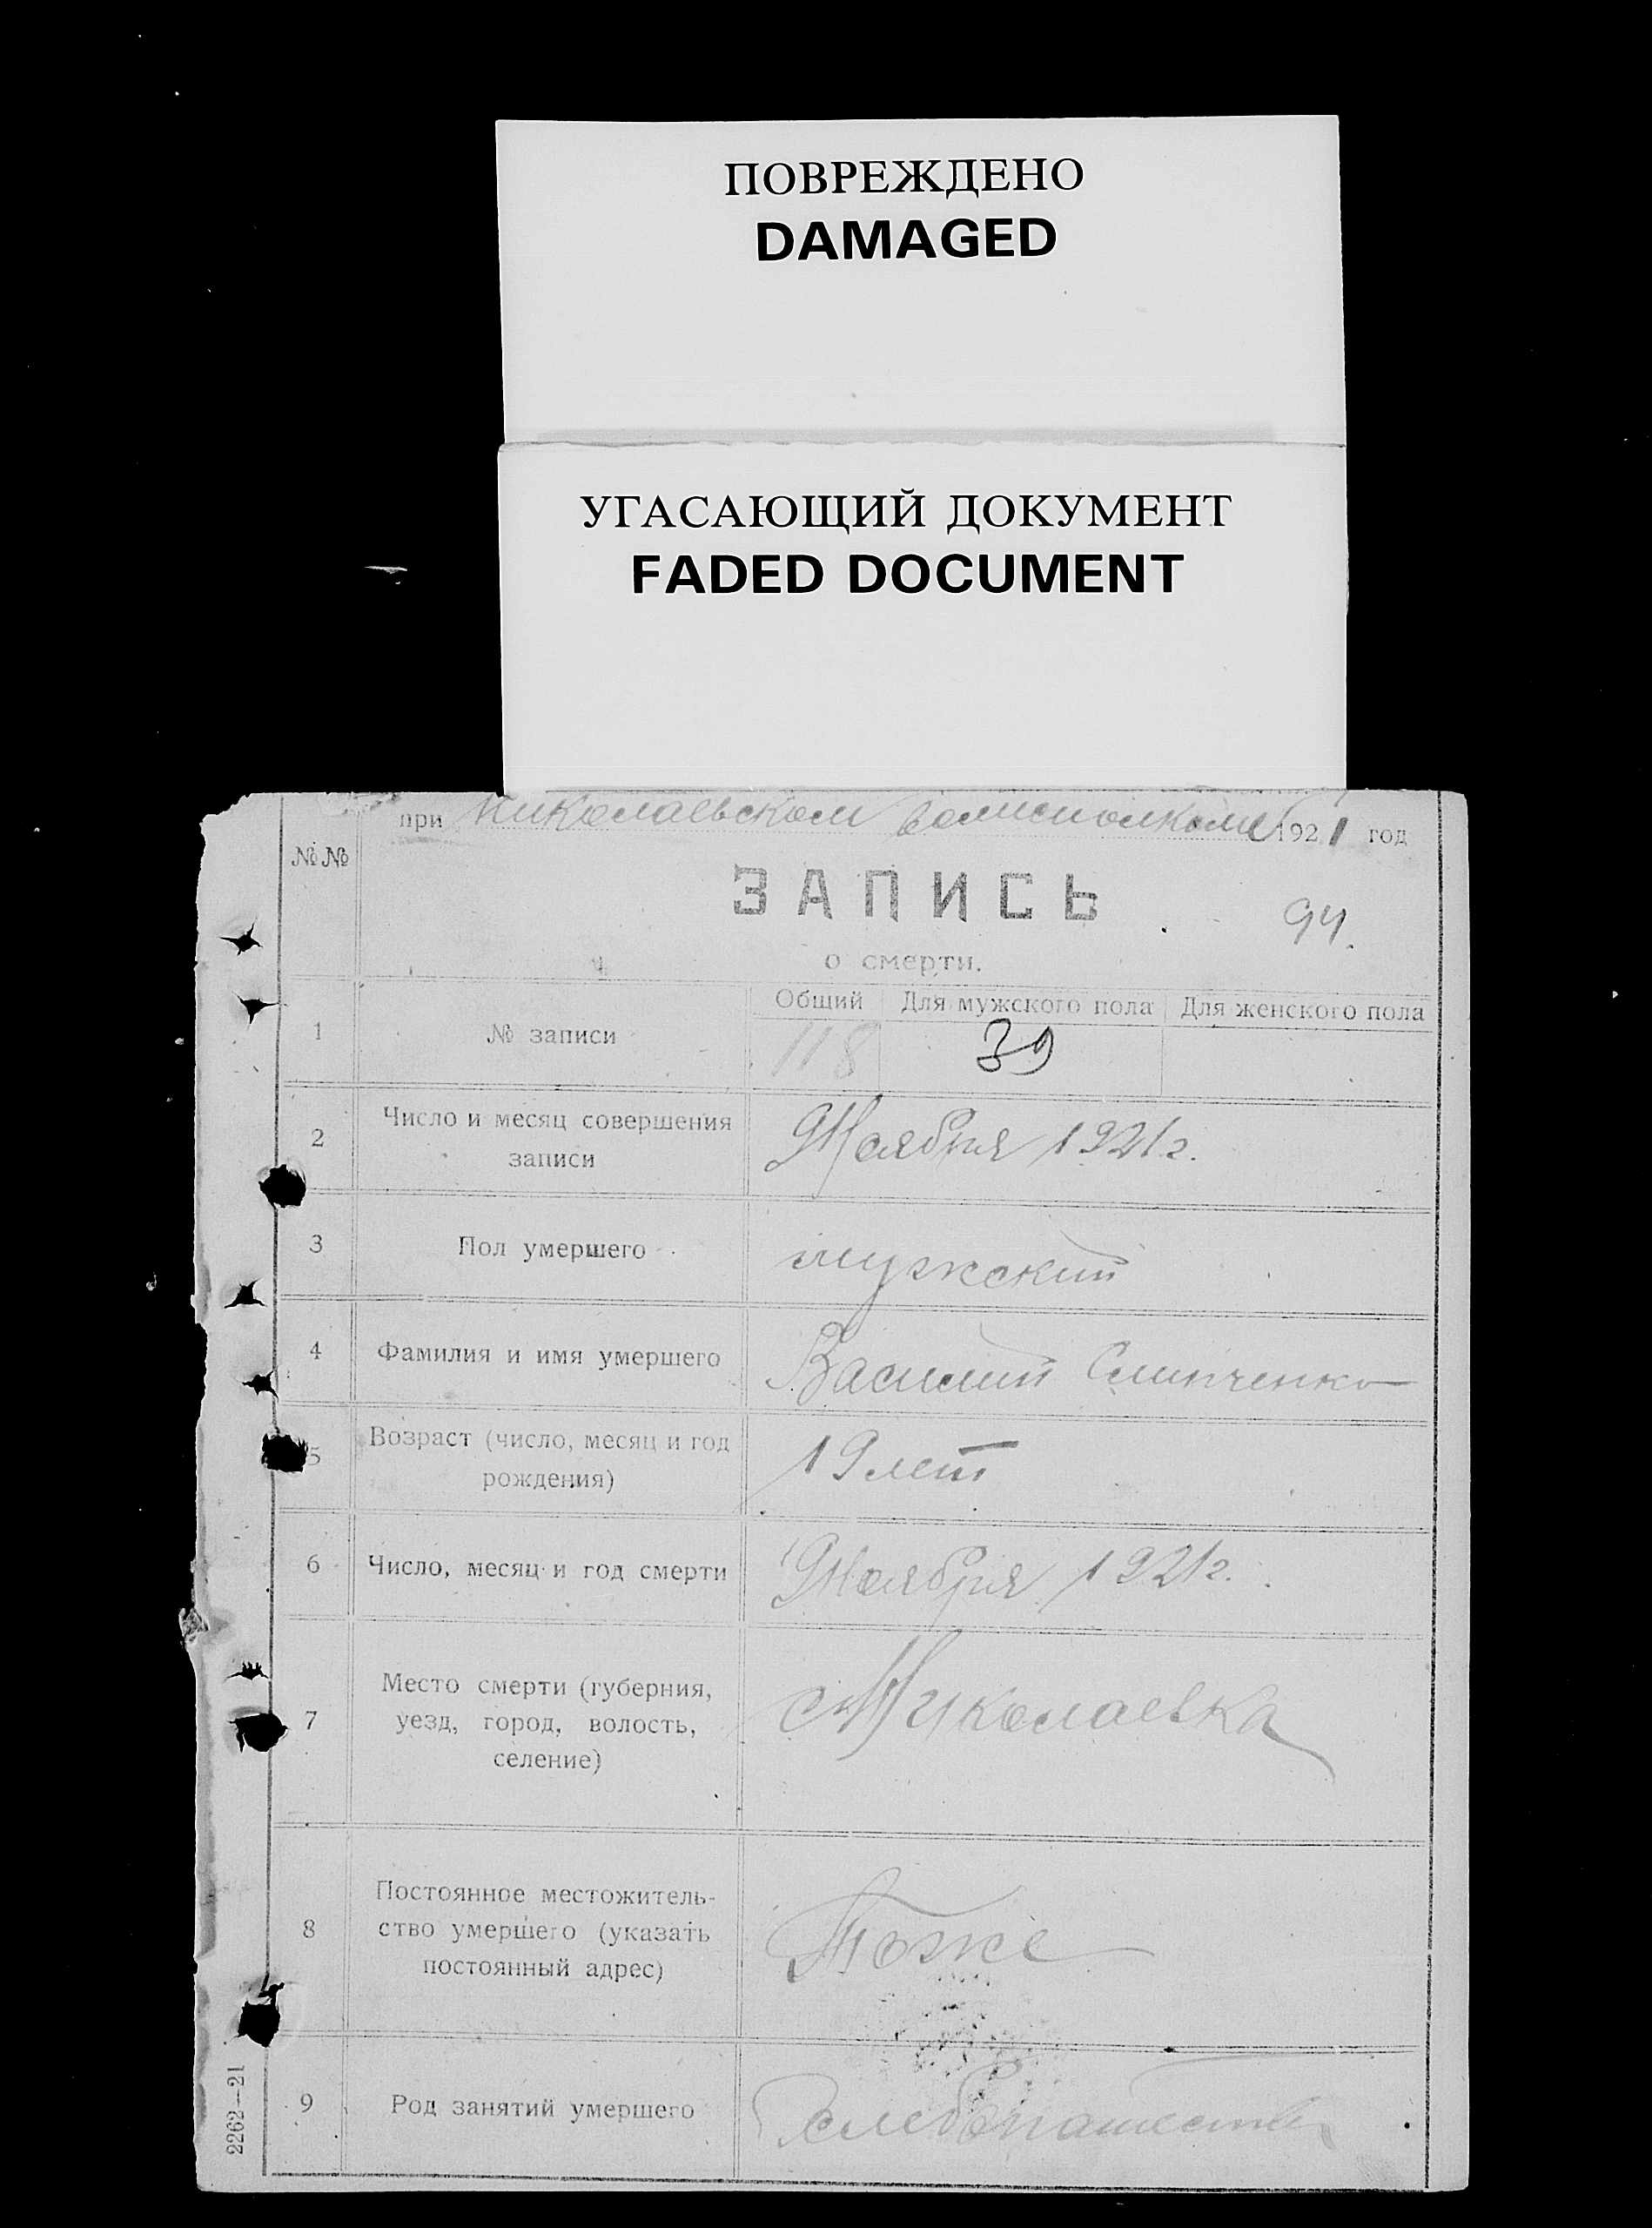 ПОВРЕЖДЕНО
DAMAGED
УГАСАЮЩИЙ ДОКУМЕНТ
FADED DOCUMENT
при Николаевском волисполкоме 1921 год
№№
ЗАПИСЬ
94.
о смерти.
Общий Для мужского пола Для женского пола
1 № записи 118 39
2 Число и месяц совершения
записи
9 Ноября 1921 г.
3 Пол умершего мужский
4 Фамилия и имя умершего Василий Слипченко
5 Возраст (число, месяц и год
рождения)
19 лет
6 Число, месяц и год смерти 9 Ноября 1921 г.
7 Место смерти (губерния,
уезд, город, волость,
селение)
с Николаевка
8 Постоянное местожитель-
ство умершего (указать
постоянный адрес)
Тоже
9 Род занятий умершего
2262—21